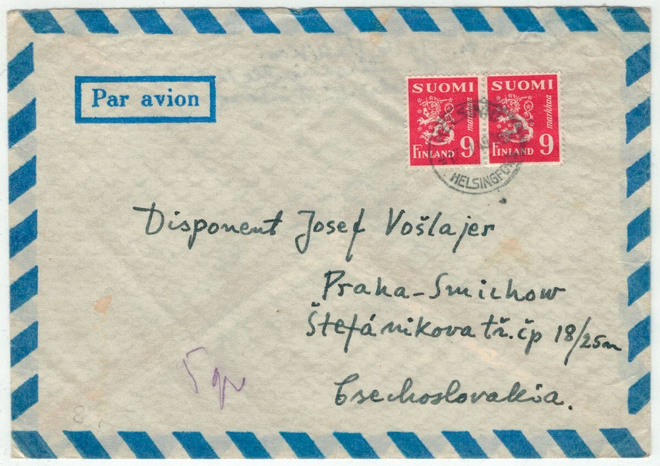 Par avion
SUOMI SUOMI
markkaa markkaa
FINLAND 9 FINLAND 9
HELSINGFORS
Disponent Josef Vošlajer
Praha-Smichow
Štefánikova tř. čp 18/25m
Csechoslovakia.
5 gr